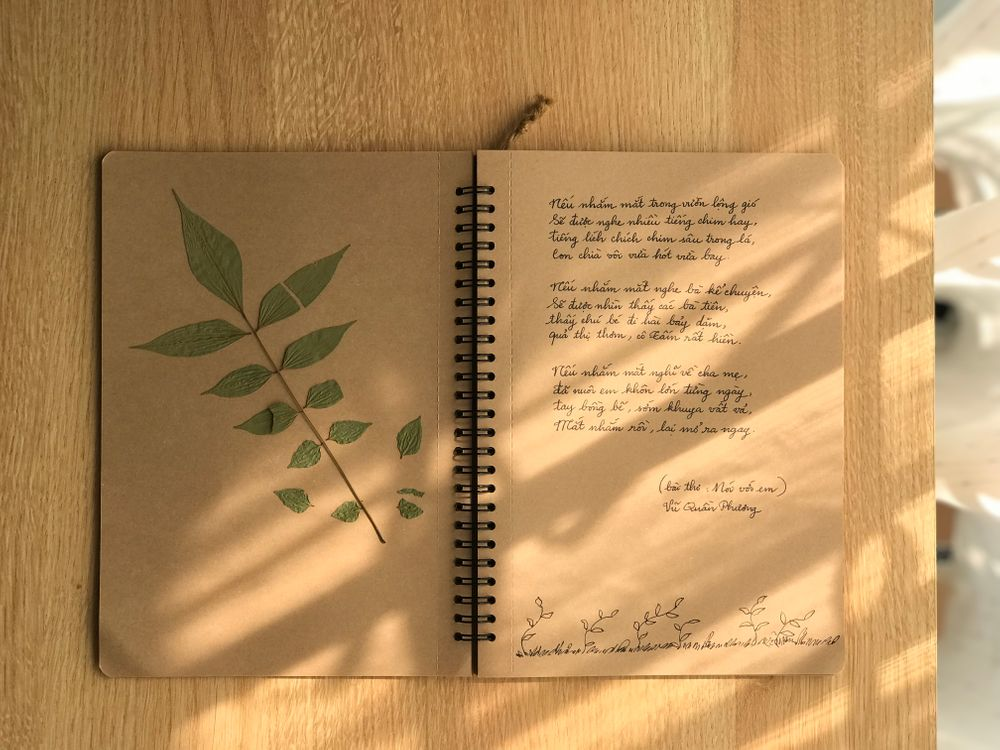 Nếu nhắm mắt trong vườn lộng gió
Sẽ được nghe nhiều tiếng chim hay,
tiếng lích chích chim sâu trong lá,
Con chìa vôi vừa hót vừa bay.
Nếu nhắm mắt nghe bà kể chuyện,
Sẽ được nhìn thấy các bà tiên,
thấy chú bé đi hài bảy dặm,
quả thị thơm, cô Tấm rất hiền.
Nếu nhắm mắt nghĩ về cha mẹ,
đã nuôi em khôn lớn từng ngày,
tay bồng bế, sớm khuya vất vả,
Mắt nhắm rồi, lại mở ra ngay.
(bài thơ : Nói với em)
Vũ Quần Phương